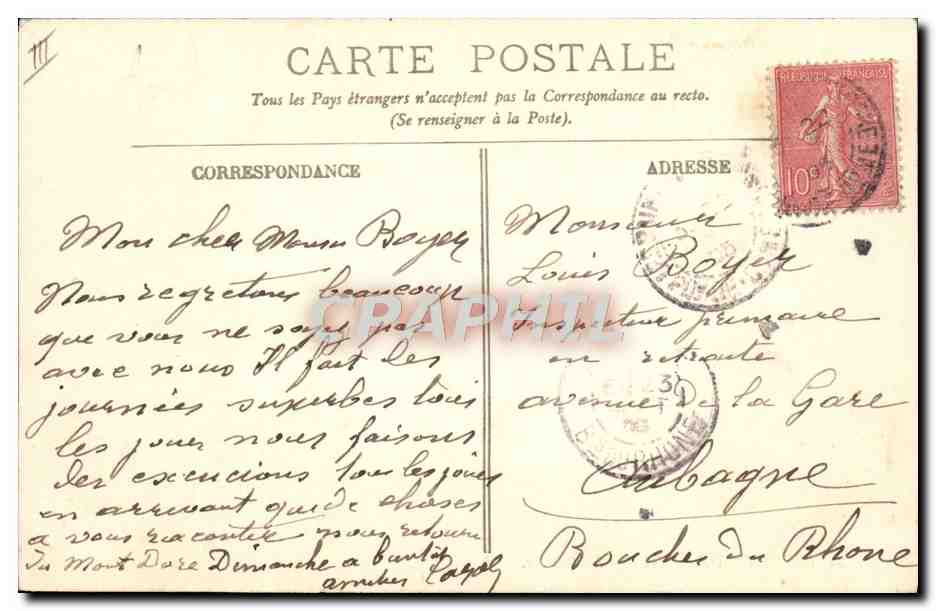 III
CARTE POSTALE
Tous les Pays étrangers n'acceptent pas la Correspondance au recto.
(Se renseigner à la Poste).
REPUBLIQUE FRANÇAISE
10c
CORRESPONDANCE
Mon cher Boyer
Nous regretons beaucoup
que vous ne soyez pas
avec nous Il fait les
journées superbes tous
les jours nous faisons
des excucions tous les jours
en arrivant que de choses
a vous raconter nous
du Mont Dore Dimanche a
CRAPHIL
ADRESSE
Monsieur
Louis Boyer
Inspecteur primaire
en retraite
avenue de la Gare
Aubagne
Bouches du Rhone